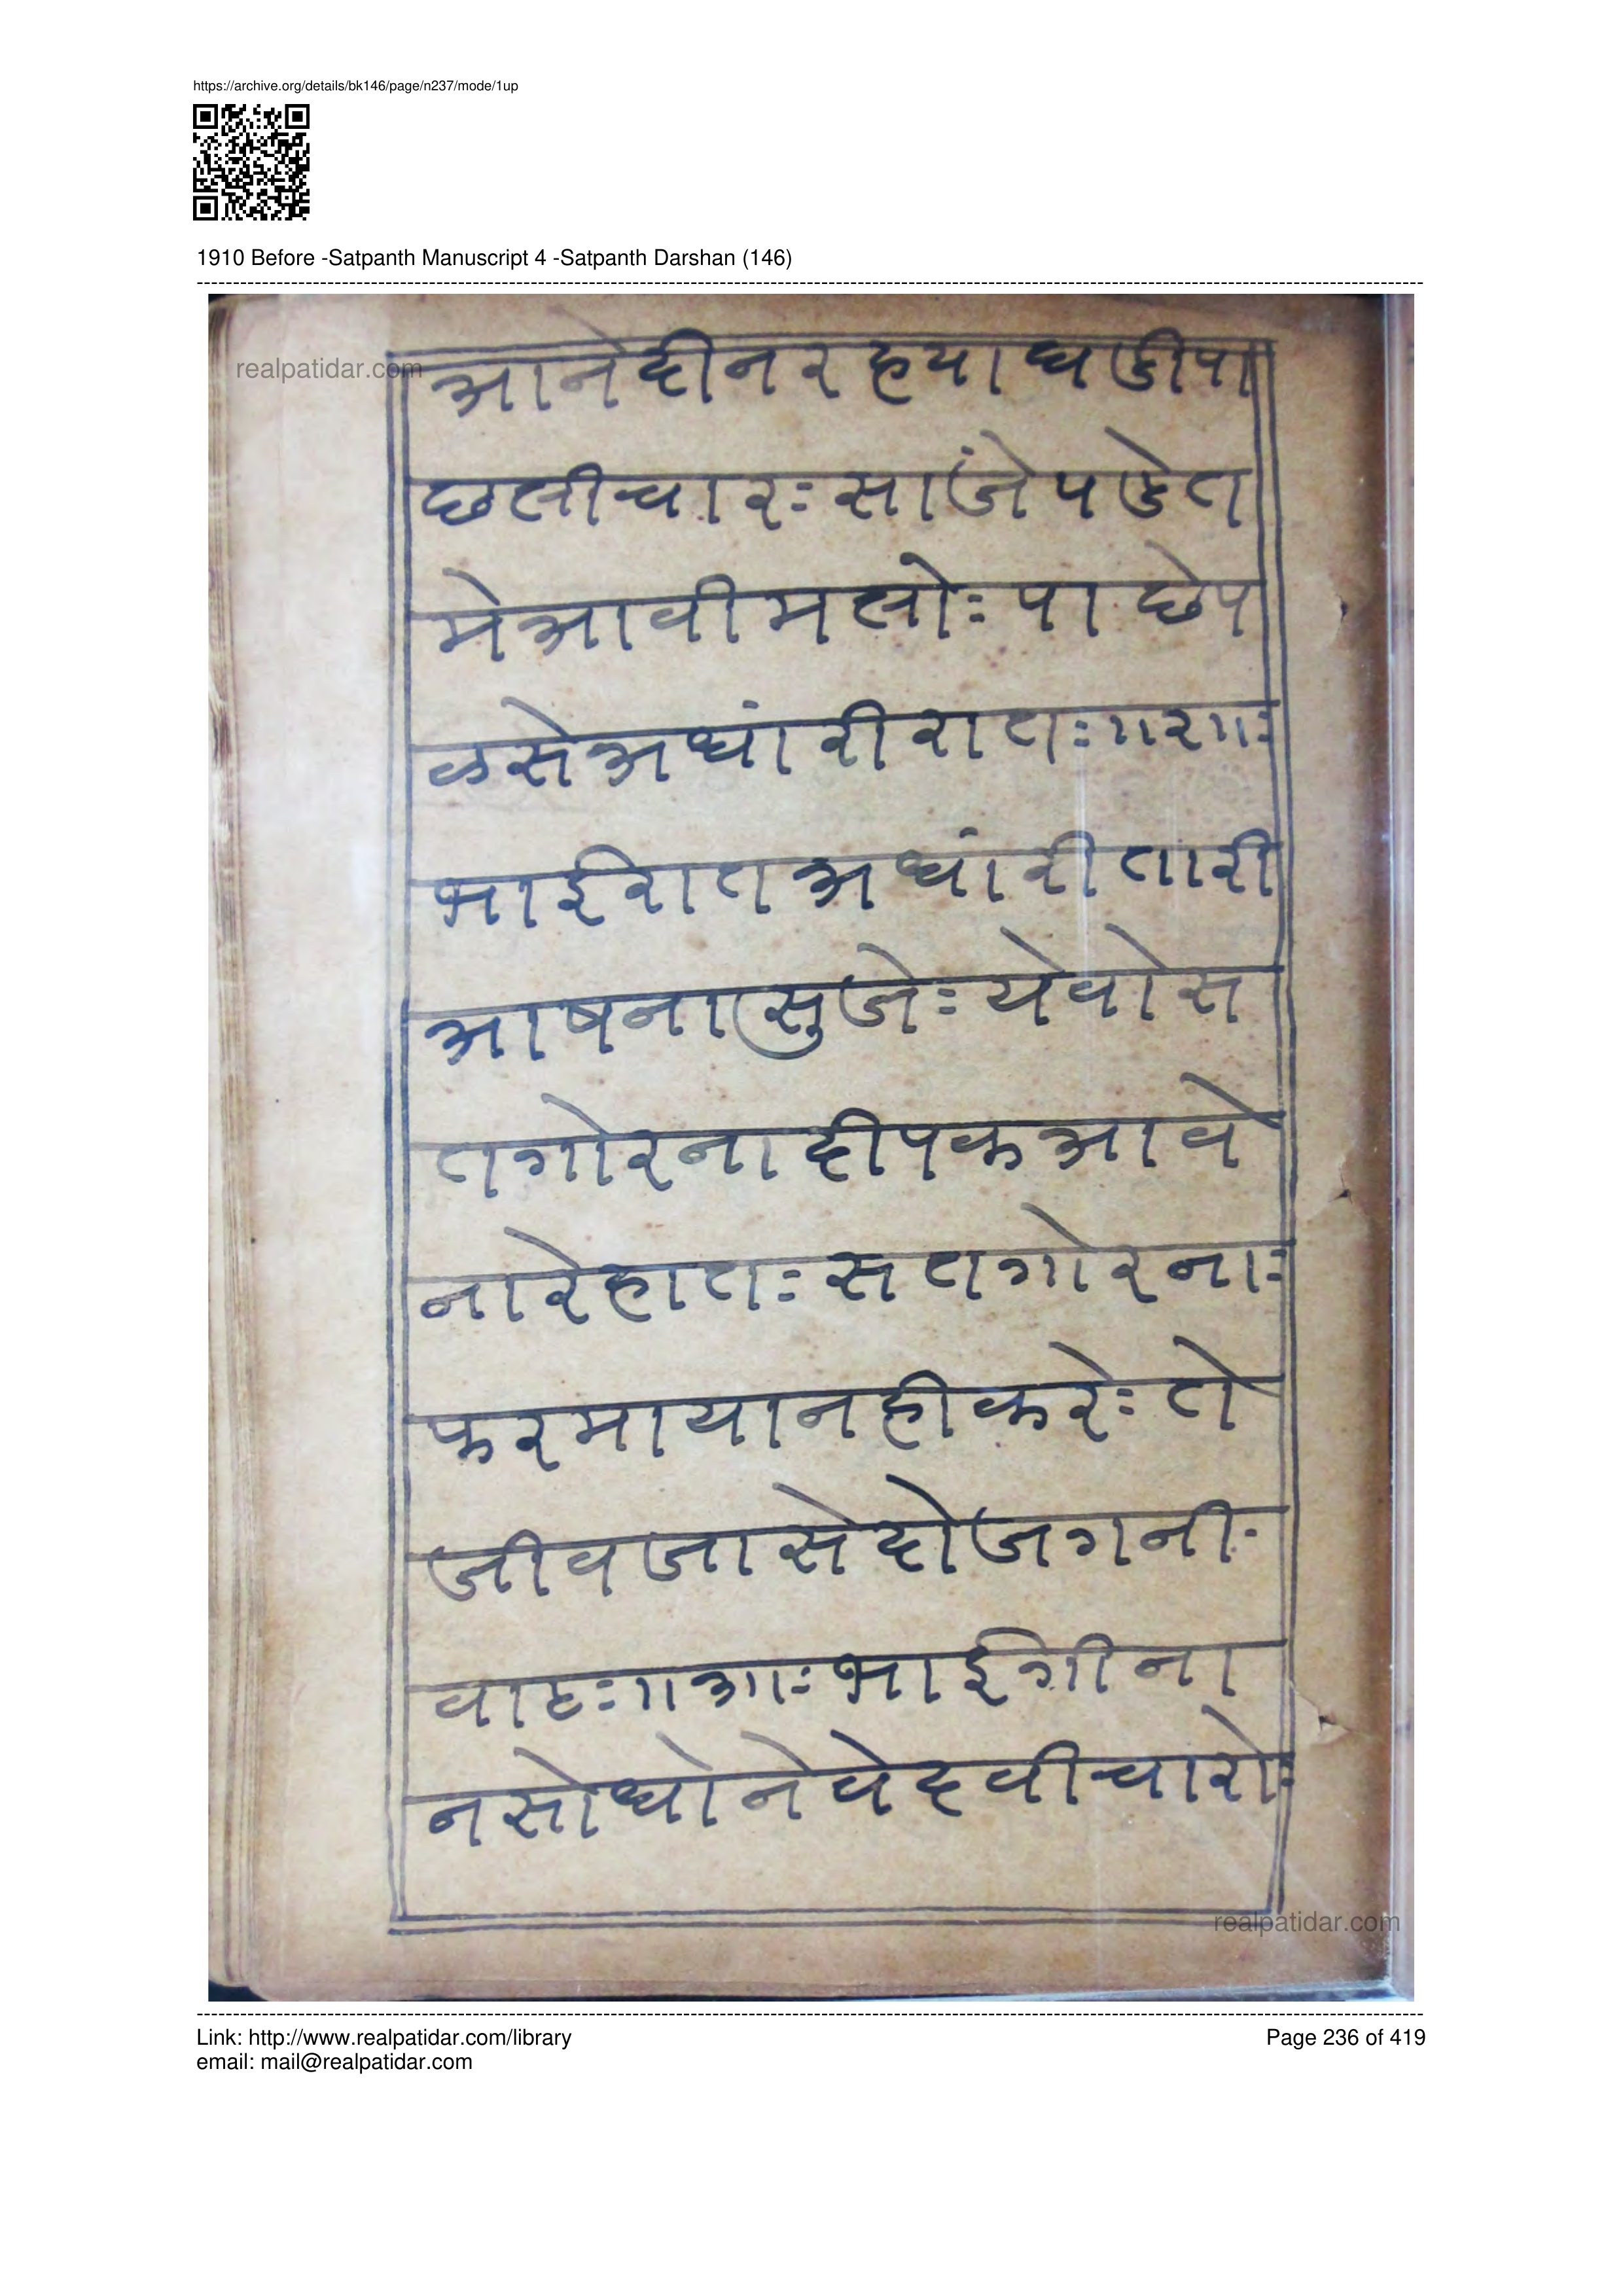 https://archive.org/details/bk146/page/n237/mode/1up
1910 Before -Satpanth Manuscript 4 -Satpanth Darshan (146)
realpatidar.com
आनेदीनरह्याघडीपा
छलीचारः सांजेपडेत
मेआवीमलोः पाछेप
डसेअधांरीरातः॥२॥ः
भाईरातअधांरीतारी
आषनासुजेः येवोस
तगोरनादीपकआवे
नारेहातः सतगोरनाः
फरमायानहीकरेः ते
जीवजासेदोजगनी
वाटः॥३॥ः भाईगीना
नसोधोनेवेदवीचारोः
realpatidar.com
Link: http://www.realpatidar.com/library
Page 236 of 419
email: mail@realpatidar.com